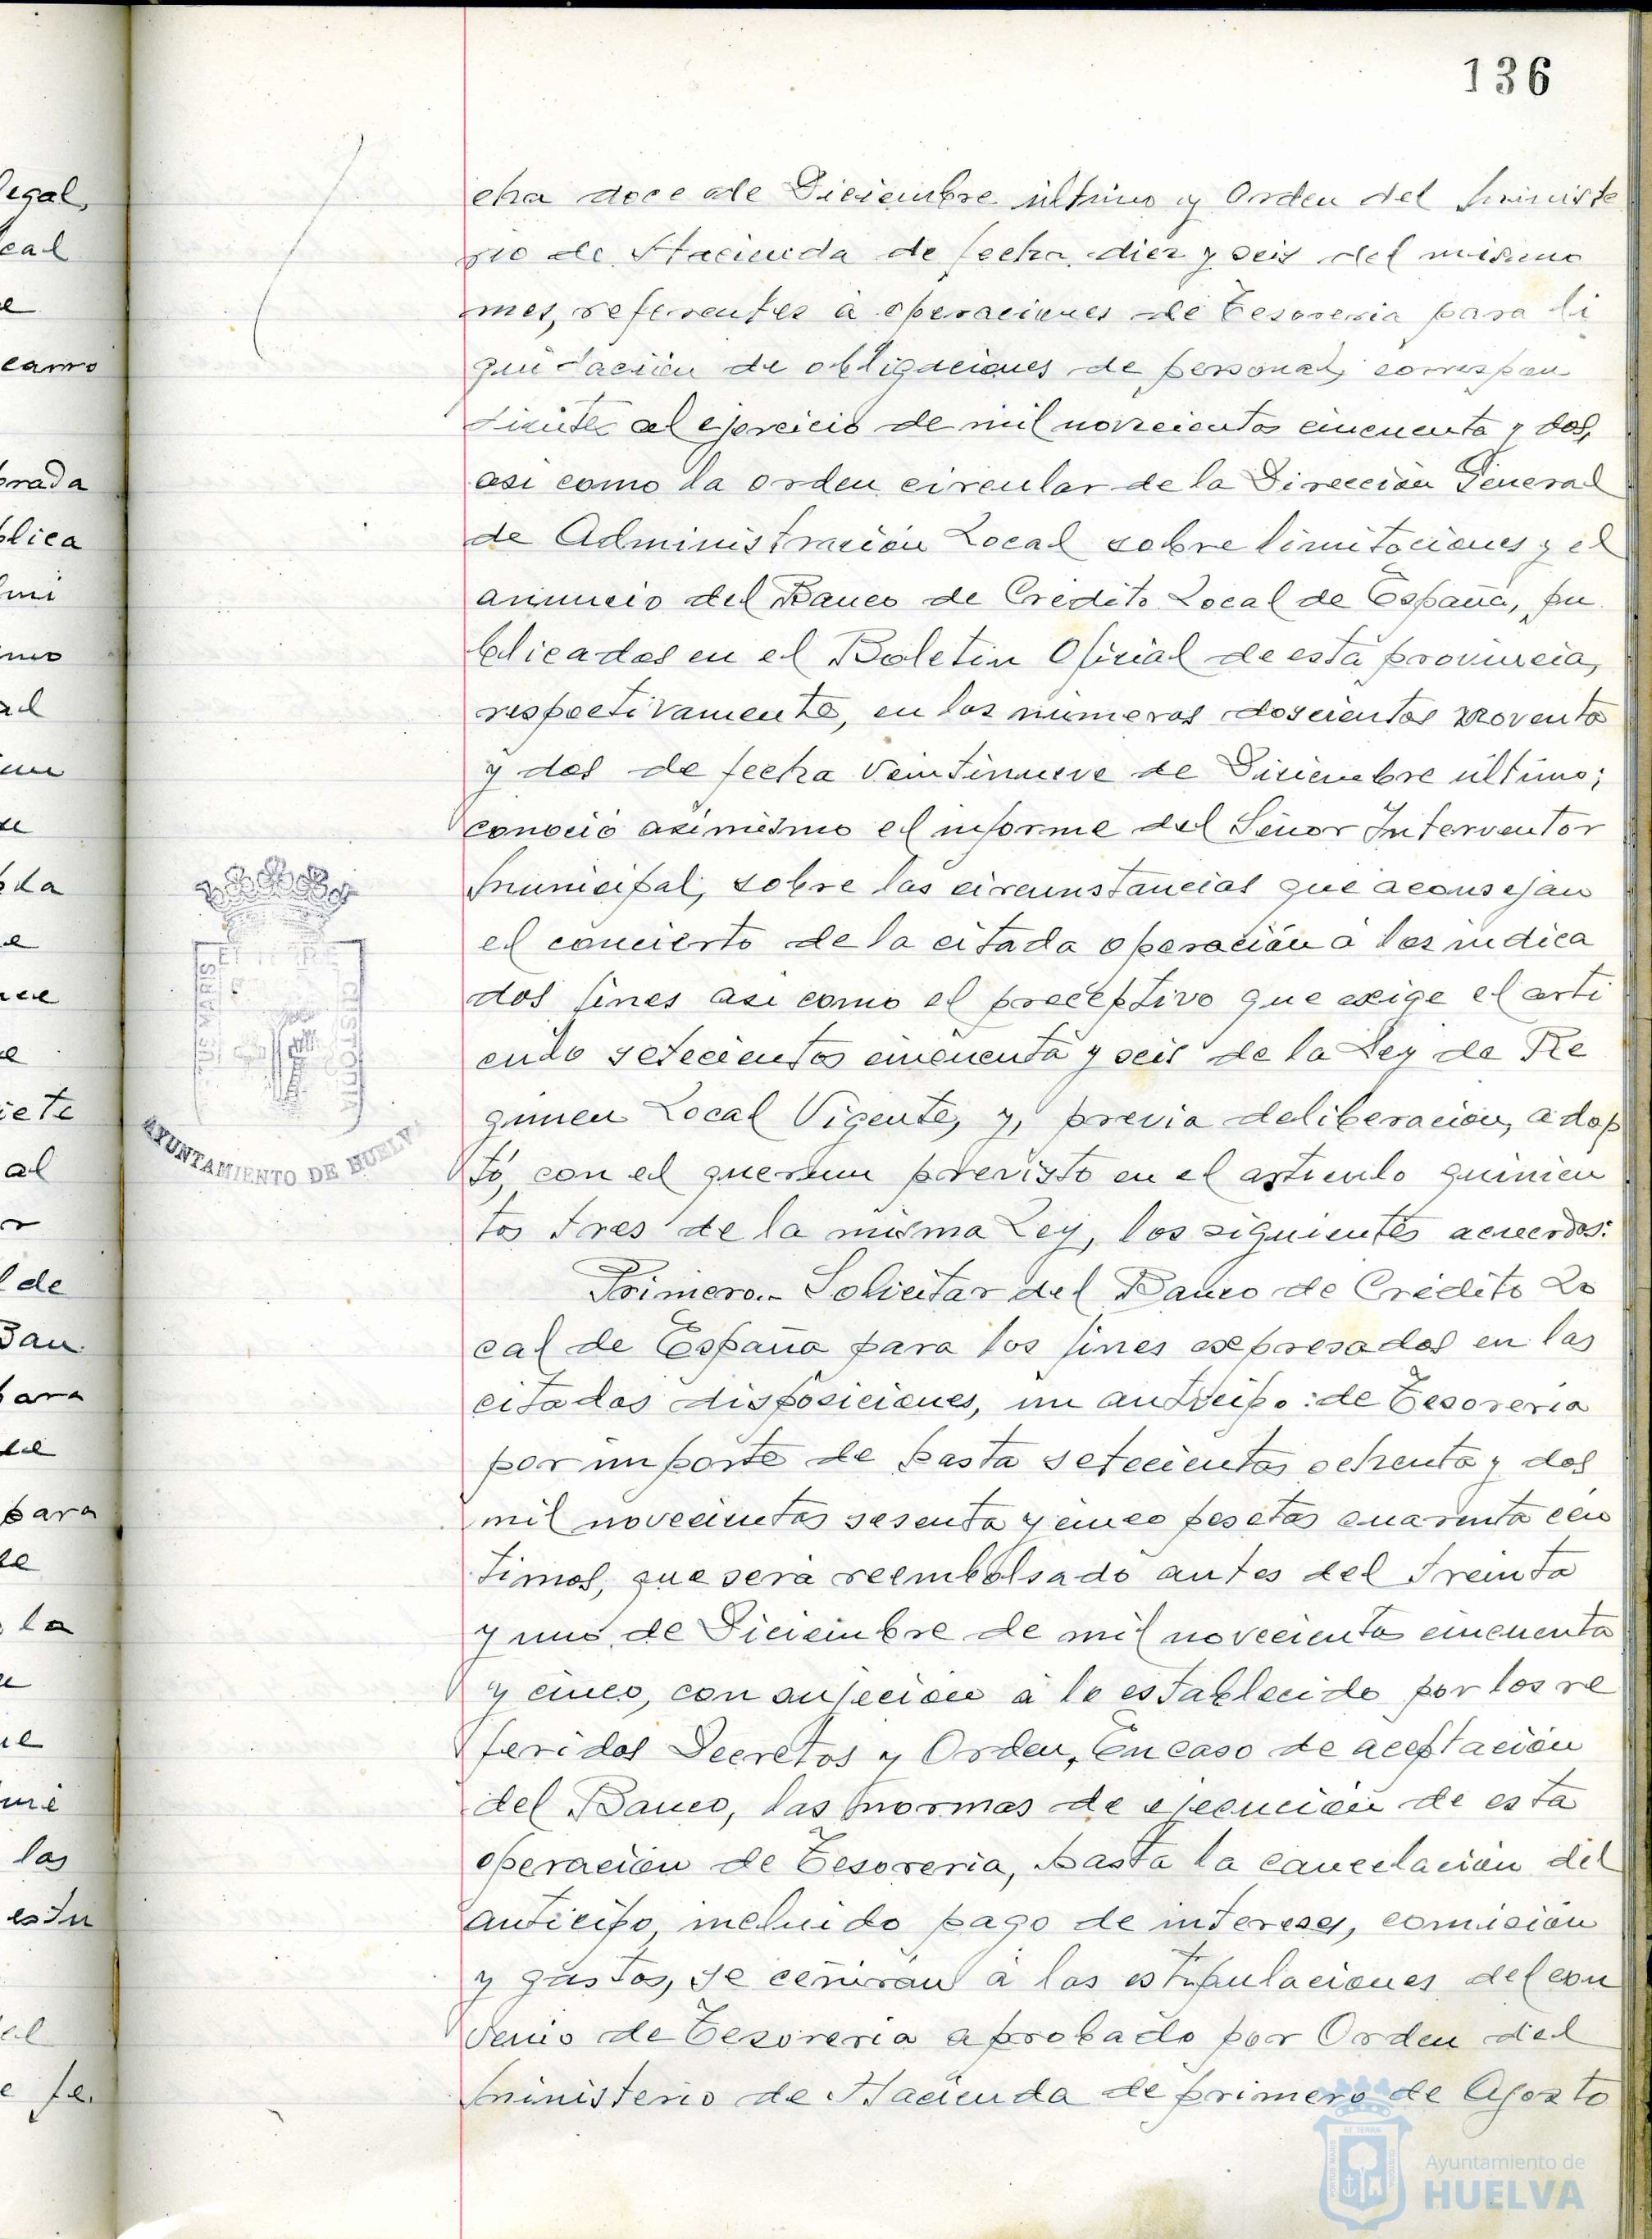 136
cha doce de Diciembre último y Orden del Ministe
rio de Hacienda de fecha diez y seis del mismo
mes, referentes á operaciones de Tesoreria para li
quidación de obligaciones de personal, correspon
dientes al ejercicio de mil novecientos cincuenta y dos,
asi como la orden circular de la Dirección General
de Administración Local sobre limitaciones y el
anuncio del Banco de Crédito Local de España, pu
blicados en el Boletin Oficial de esta provincia,
respectivamente, en los números doscientos noventa
y dos de fecha veintinueve de Diciembre último;
conoció asimismo el informe del Señor Interventor
Municipal, sobre las circunstancias que aconsejan
el concierto de la citada operación á los indica
dos fines asi como el preceptivo que exige el arti
culo setecientos cincuenta y seis de la Ley de Re
gimen Local Vigente, y, previa deliberación, adop
tó, con el querum previsto en el artículo quinien
tos tres de la misma Ley, los siguientes acuerdos:
Primero.- Solicitar del Banco de Crédito Lo
cal de España para los fines expresados en las
citadas disposiciones, un anticipo de Tesoreria
por importe de hasta setecientas ochenta y dos
mil novecientas sesenta y cinco pesetas cuarenta cén
timos, que será reembolsado antes del treinta
y uno de Diciembre de mil novecientos cincuenta
y cinco, con sujeción á lo establecido por los re
feridos Decretos y Orden, En caso de aceptación
del Banco, las normas de ejecución de esta
operación de Tesoreria, hasta la cancelación del
anticipo, incluido pago de intereses, comisión
y gastos, se ceñirán á las estipulaciones del con
venio de Tesoreria aprobado por Orden del
Ministerio de Hacienda de primero de Agosto
AYUNTAMIENTO DE HUELVA
Ayuntamiento de
HUELVA
legal,
cal
brada
blica
al
de
para
la
las
estu
fe.